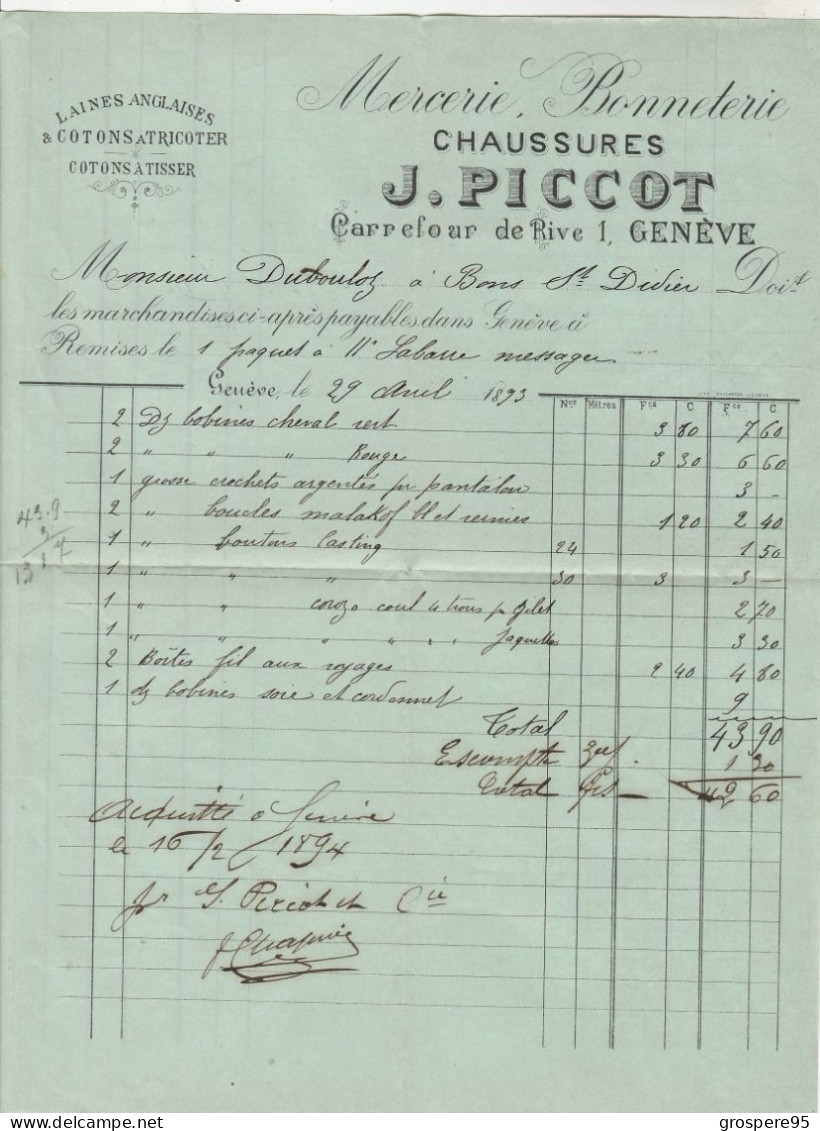 LAINES ANGLAISES
& COTONS A TRICOTER
COTONS À TISSER
Mercerie, Bonneterie
CHAUSSURES
J. PICCOT
Carrefour de Rive 1, GENÈVE
Monsieur Dubouloz à Bons St Didier Doit
les marchandises ci-après payables dans Genève à
Remises le 1 paquet à Labarre messager
Genève, le 29 Avril 1893
Nos Mètres Fcs C. Fcs C
2 Dz bobines cheval vert 3 80 7 60
2 " " " Rouge 3 30 6 60
1 grosse crochets argentés pr pantalon 3 —
2 " boucles malakof et 1 20 2 40
1 " boutons lasting 24 1 50
1 " " " 30 3 3 —
1 " " corozo coul 4 trous pr Gilet 2 70
1 " " " " " " Jaquettes 3 30
2 Boîtes fil aux 2 40 4 80
1 dz bobines soie et cordonnet 9
43.9
3
13 1 7
Total 43 90
Escompte 1 30
Total 42 60
Acquitté à Genève
le 16/2 1894
pr J. Piccot et Cie
grospere95